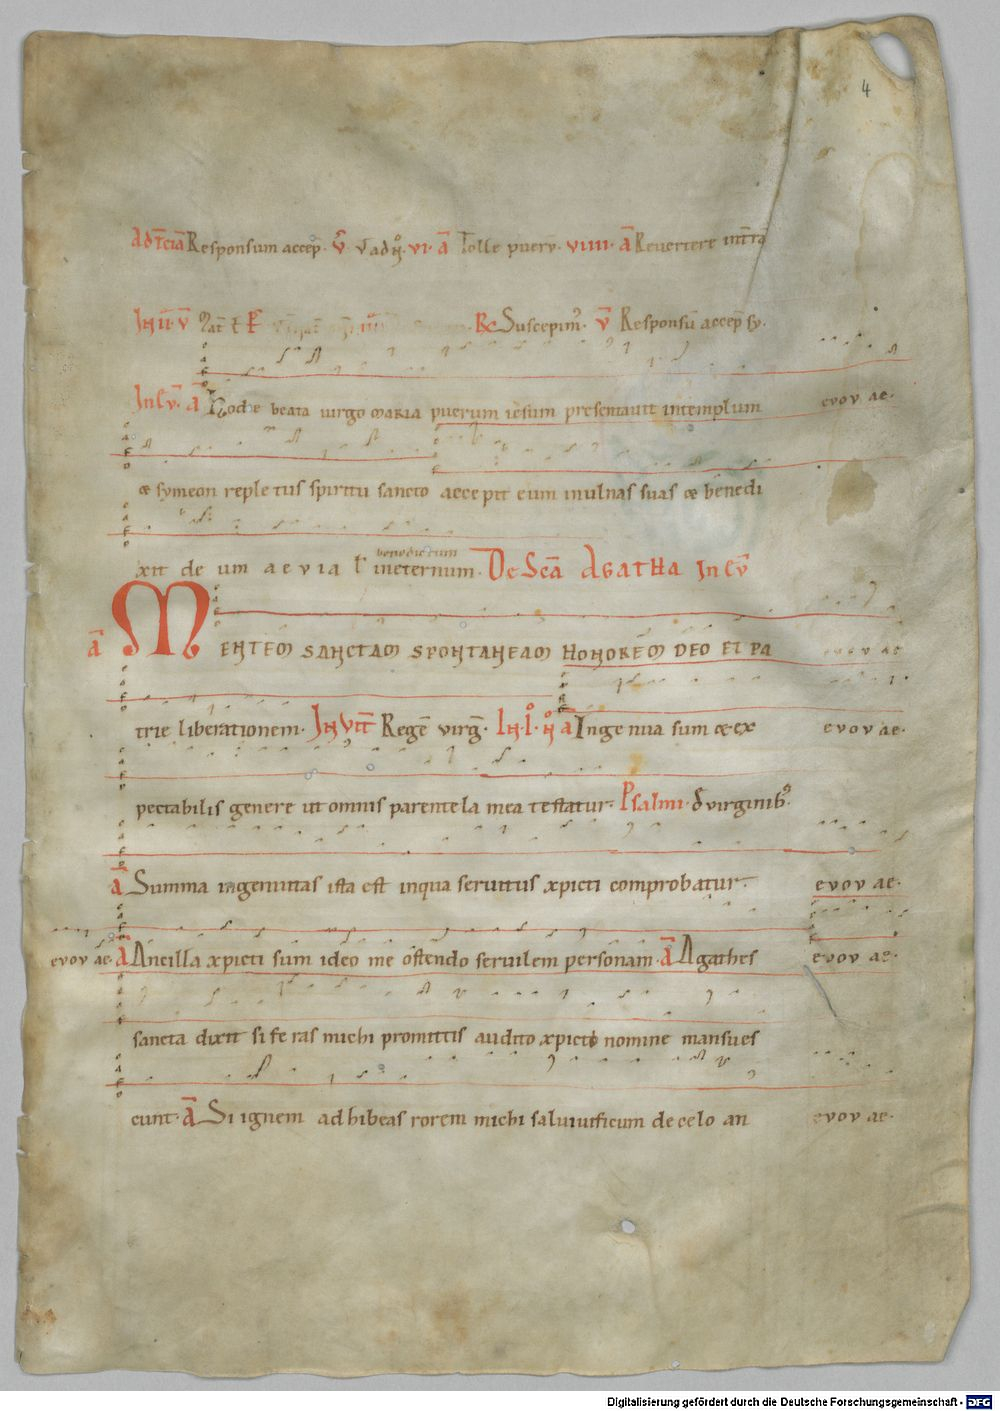 4
Ad t̄ciā Responsum accep̄. v̄. Vadn̊. vi. ā Tolle puerū. viiii. ā Revertere in trā
In ii. v̄ Rc Suscepim᷒. v̄ Responsū accep̄ sy.
In ev̄. ā Hodie beata virgo maria puerum iesum presentavit in templum evov ae.
& symeon repletus spiritu sancto accepit eum in ulnas suas & benedi
benedictum
xit deum aevia ł in eternum. De Scā Agatha In ev̄
ā Mentem sanctam spontaneam honorem deo et pa evov ae
trie liberationem. In vit̄ Regē virḡ. In. i. n̊ ā Ingenua sum & ex evov ae.
pectabilis genere ut omnis parentela mea testatur. Psalmi. d̄ virginib᷒.
ā Summa ingenuitas ista est in qua servitus xpicti comprobatur. evov ae.
evov ae. ā Ancilla xpicti sum ideo me ostendo servilem personam. ā Agathes evov ae.
sancta dixit si feras michi promittis audito xpicto nomine mansues
cunt. ā Si ignem adhibeas rorem michi salvivificum de celo an evov ae.
Digitalisierung gefördert durch die Deutsche Forschungsgemeinschaft - DFG